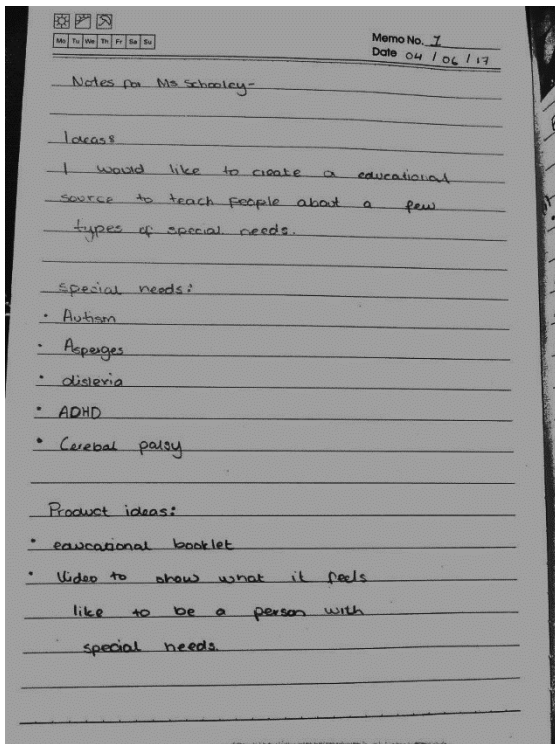 Mo Tu We Th Fr Sa Su
Memo No. 1
Date 04 / 06 / 17
Notes for Ms Schooley-
Ideas:
I would like to create a educational
source to teach people about a few
types of special needs.
special needs:
• Autism
• Asperges
• dislexia
• ADHD
• Cerebal palsy
Product ideas:
• educational booklet
• Video to show what it feels
like to be a person with
special needs.